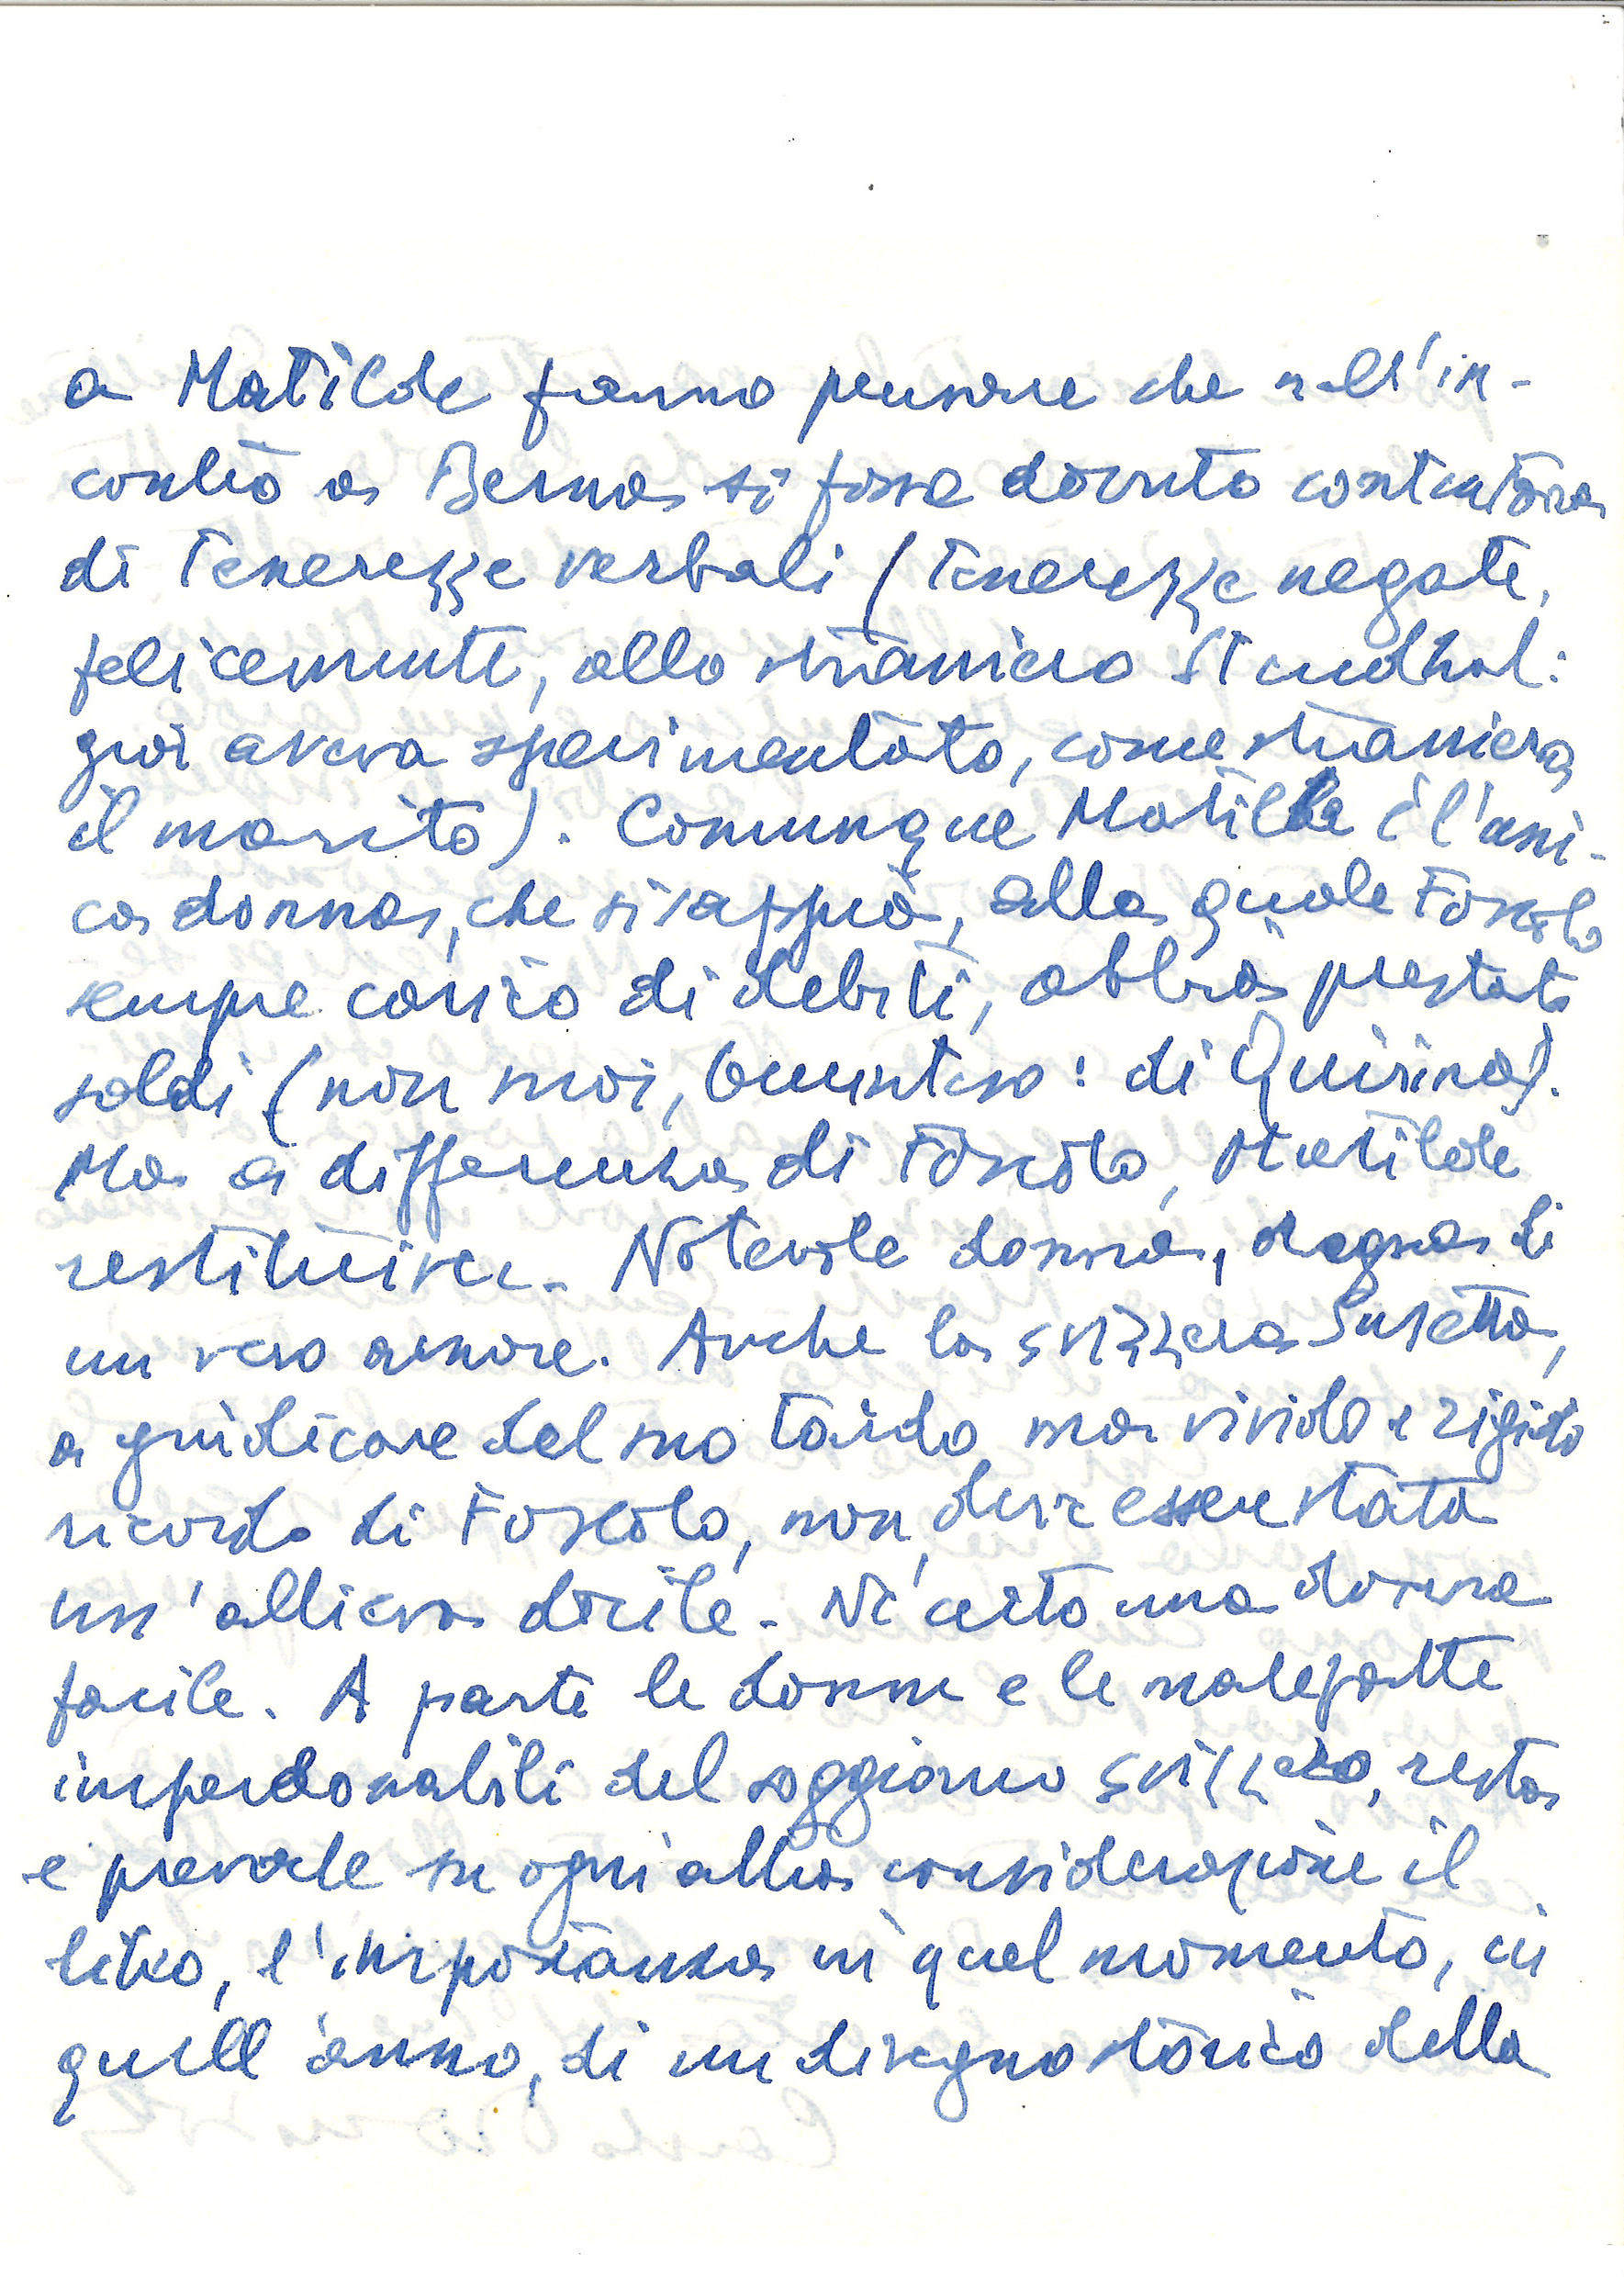 a Matilde fanno pensare che nell'in-
contro a Berna si fosse dovuto contentare
di tenerezze verbali (tenerezze negate,
felicemente, allo straniero Stendhal:
già aveva sperimentato, come straniero,
il marito). Comunque Matilde è l'uni-
ca donna, che si sappia, alla quale Foscolo
sempre carico di debiti, abbia prestato
soldi (non suoi, beninteso: di Quirina).
Ma a differenza di Foscolo, Matilde
restituiva. Notevole donna, degna di
un vero amore. Anche la svizzera Susetta,
a giudicare dal suo tardo ma vivido e rigido
ricordo di Foscolo, non deve essere stata
un'allieva docile. Né certo una donna
facile. A parte le donne e le malefatte
imperdonabili del soggiorno svizzero, resta
e prevale su ogni altra considerazione il
libro, l'importanza in quel momento, in
quell'anno, di un disegno storico della